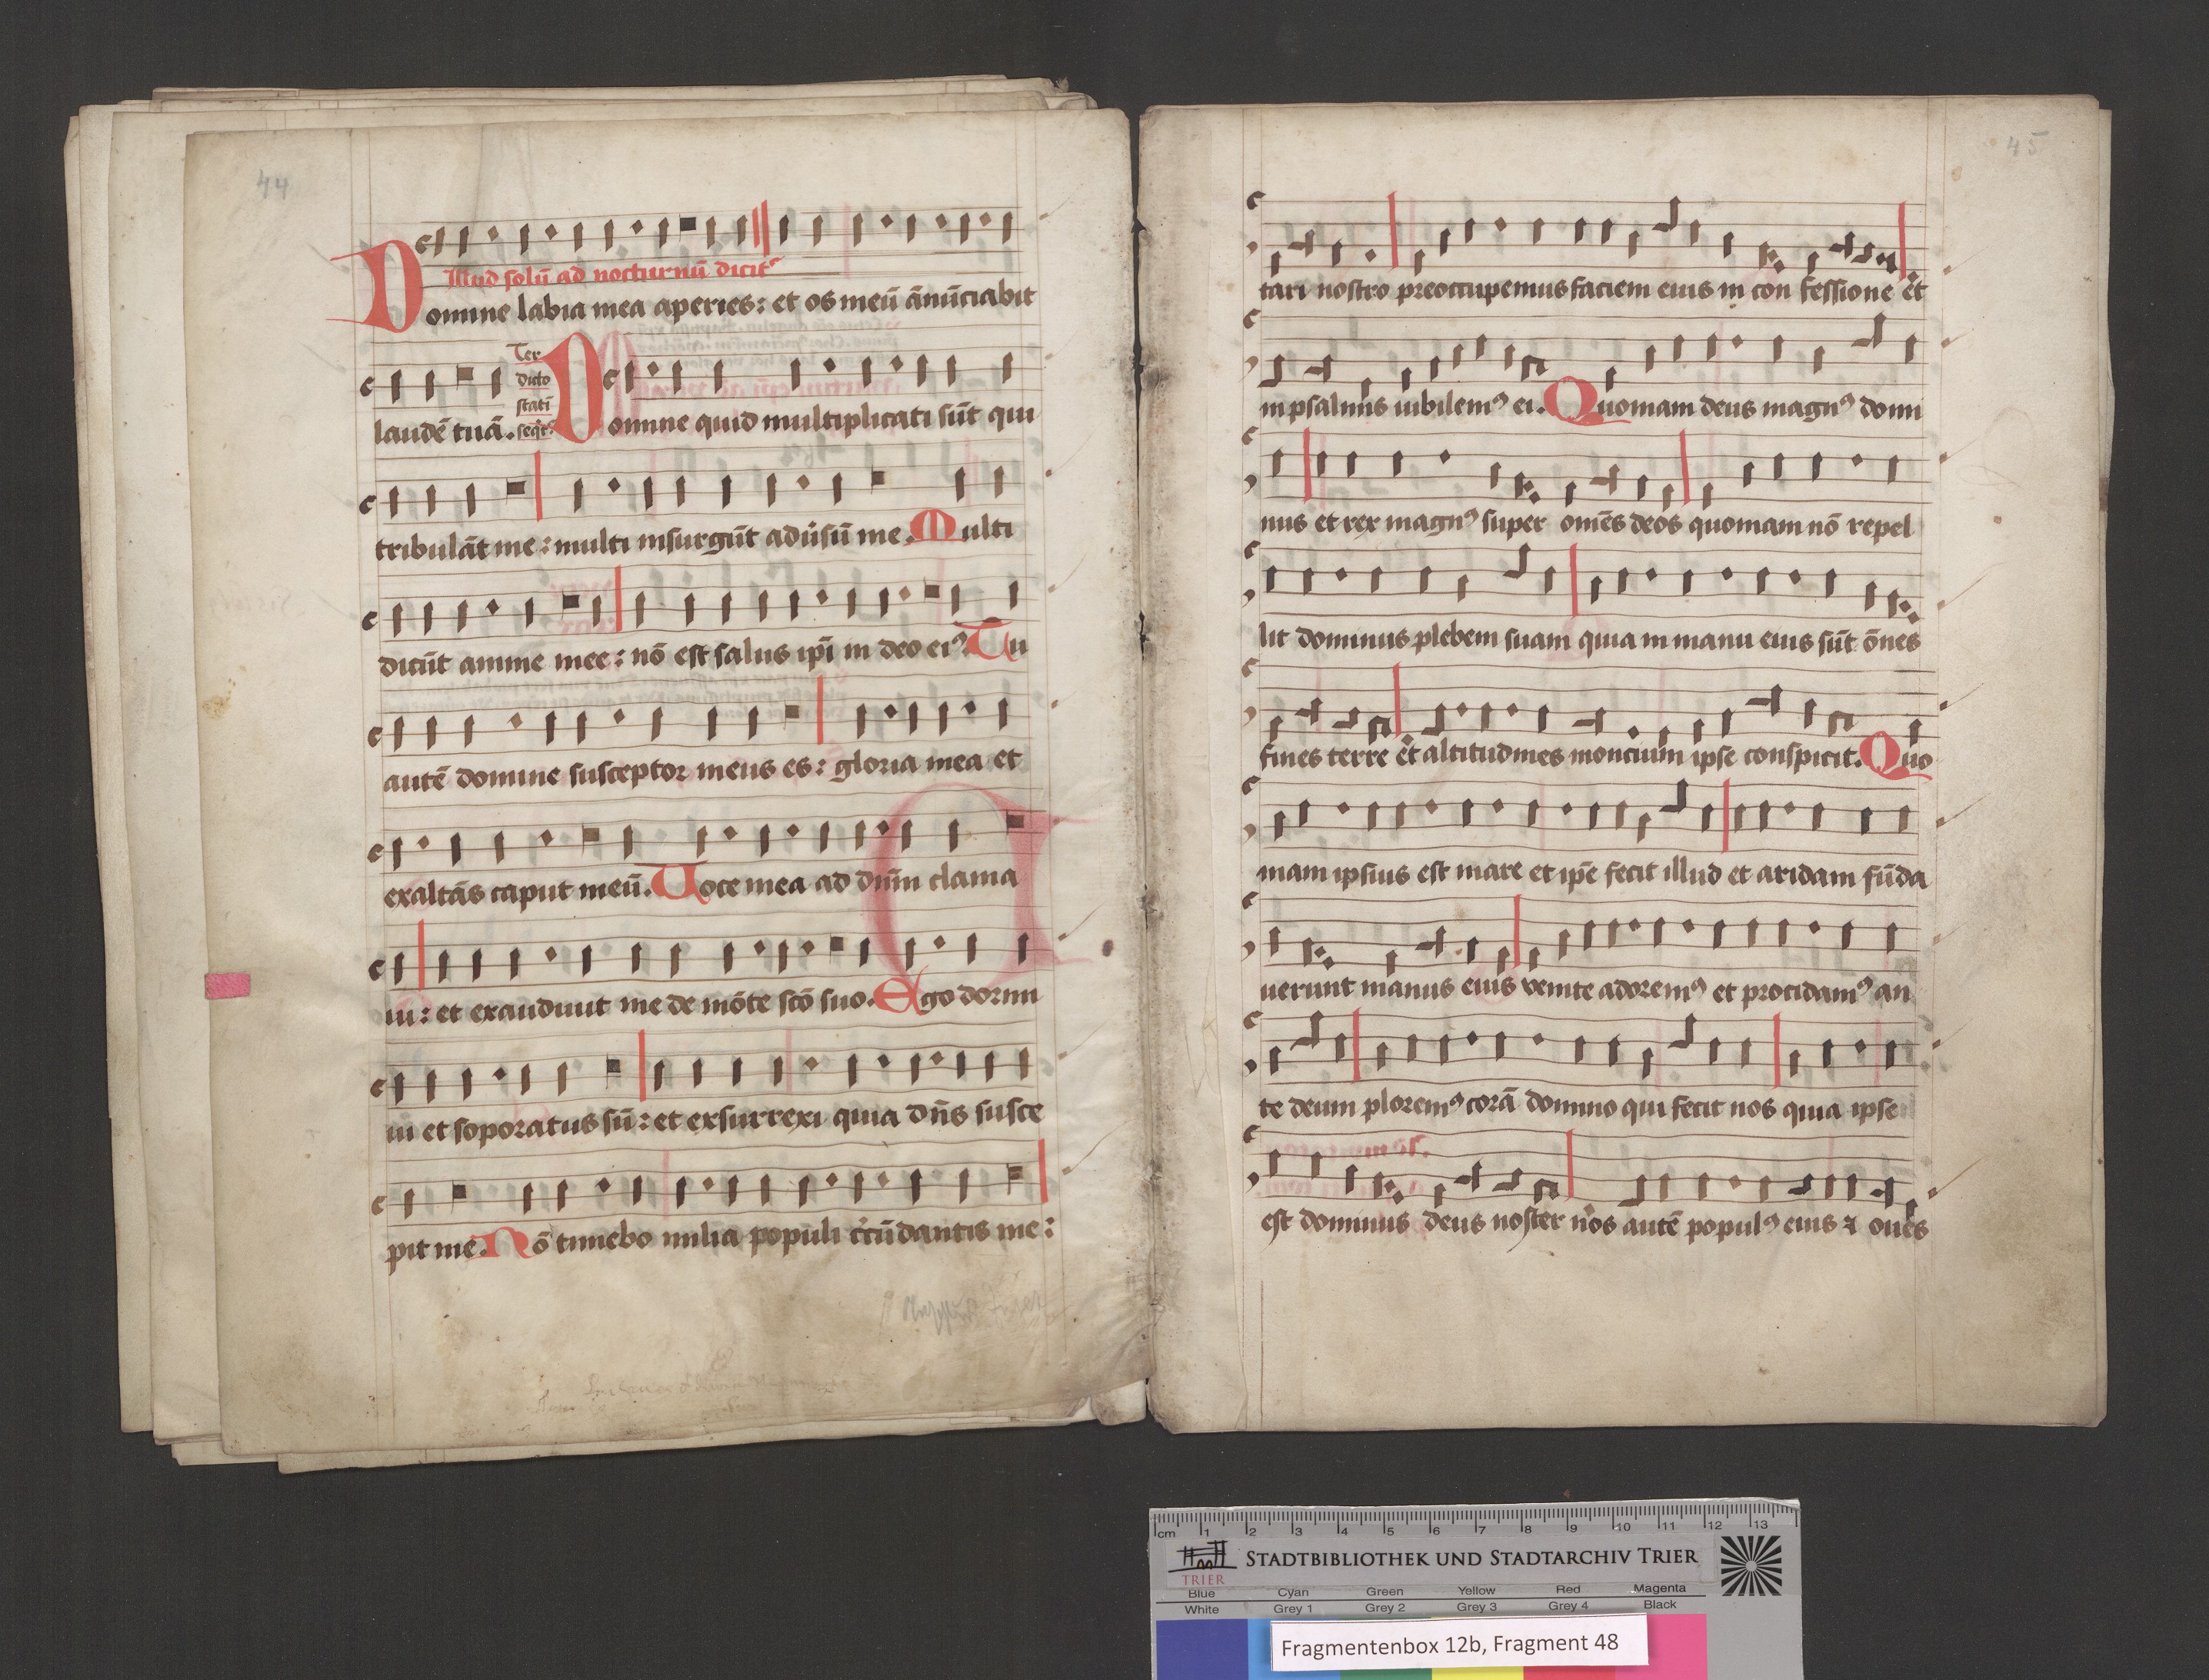 44
Illud solū ad nocturnū dicit᷑
Domine labia mea aperies: et os meū ānūciabit
laudē tuā. Ter dicto statī seqt᷑ Domine quid multiplicati sūt qui
tribulāt me: multi insurgūt adúsū me. Multi
dicūt anime mee: nō est salus ipī in deo eiꝰ. Tu
autē domine susceptor meus es: gloria mea et
exaltās caput meū. Uoce mea ad dn̄m clama
ui: et exaudiuit me de mōte scō suo. Ego dormi
ui et soporatus sū: et exsurrexi quia dn̄s susce
pit me. Nō timebo milia populi ċcūdantis me:
45
tari nostro preoccupemus faciem eius in con fessione et
in psalmis iubilemꝰ ei. Quoniam deus magnꝰ domi
nus et rex magnꝰ super om̄es deos quoniam nō repel
lit dominus plebem suam quia in manu eius sūt ōnes
fines terre et altitudines moncium ipse conspicit. Quo
niam ipsius est mare et ip̄e fecit illud et aridam fūda
uerunt manus eius venite adoremꝰ et procidamꝰ an
te deum ploremꝰ corā domino qui fecit nos quia ipse
est dominus deus noster nos autē populꝰ eius ⁊ oues
cm 1 2 3 4 5 6 7 8 9 10 11 12 13
TRIER
STADTBIBLIOTHEK UND STADTARCHIV TRIER
Blue Cyan Green Yellow Red Magenta
White Grey 1 Grey 2 Grey 3 Grey 4 Black
Fragmentenbox 12b, Fragment 48